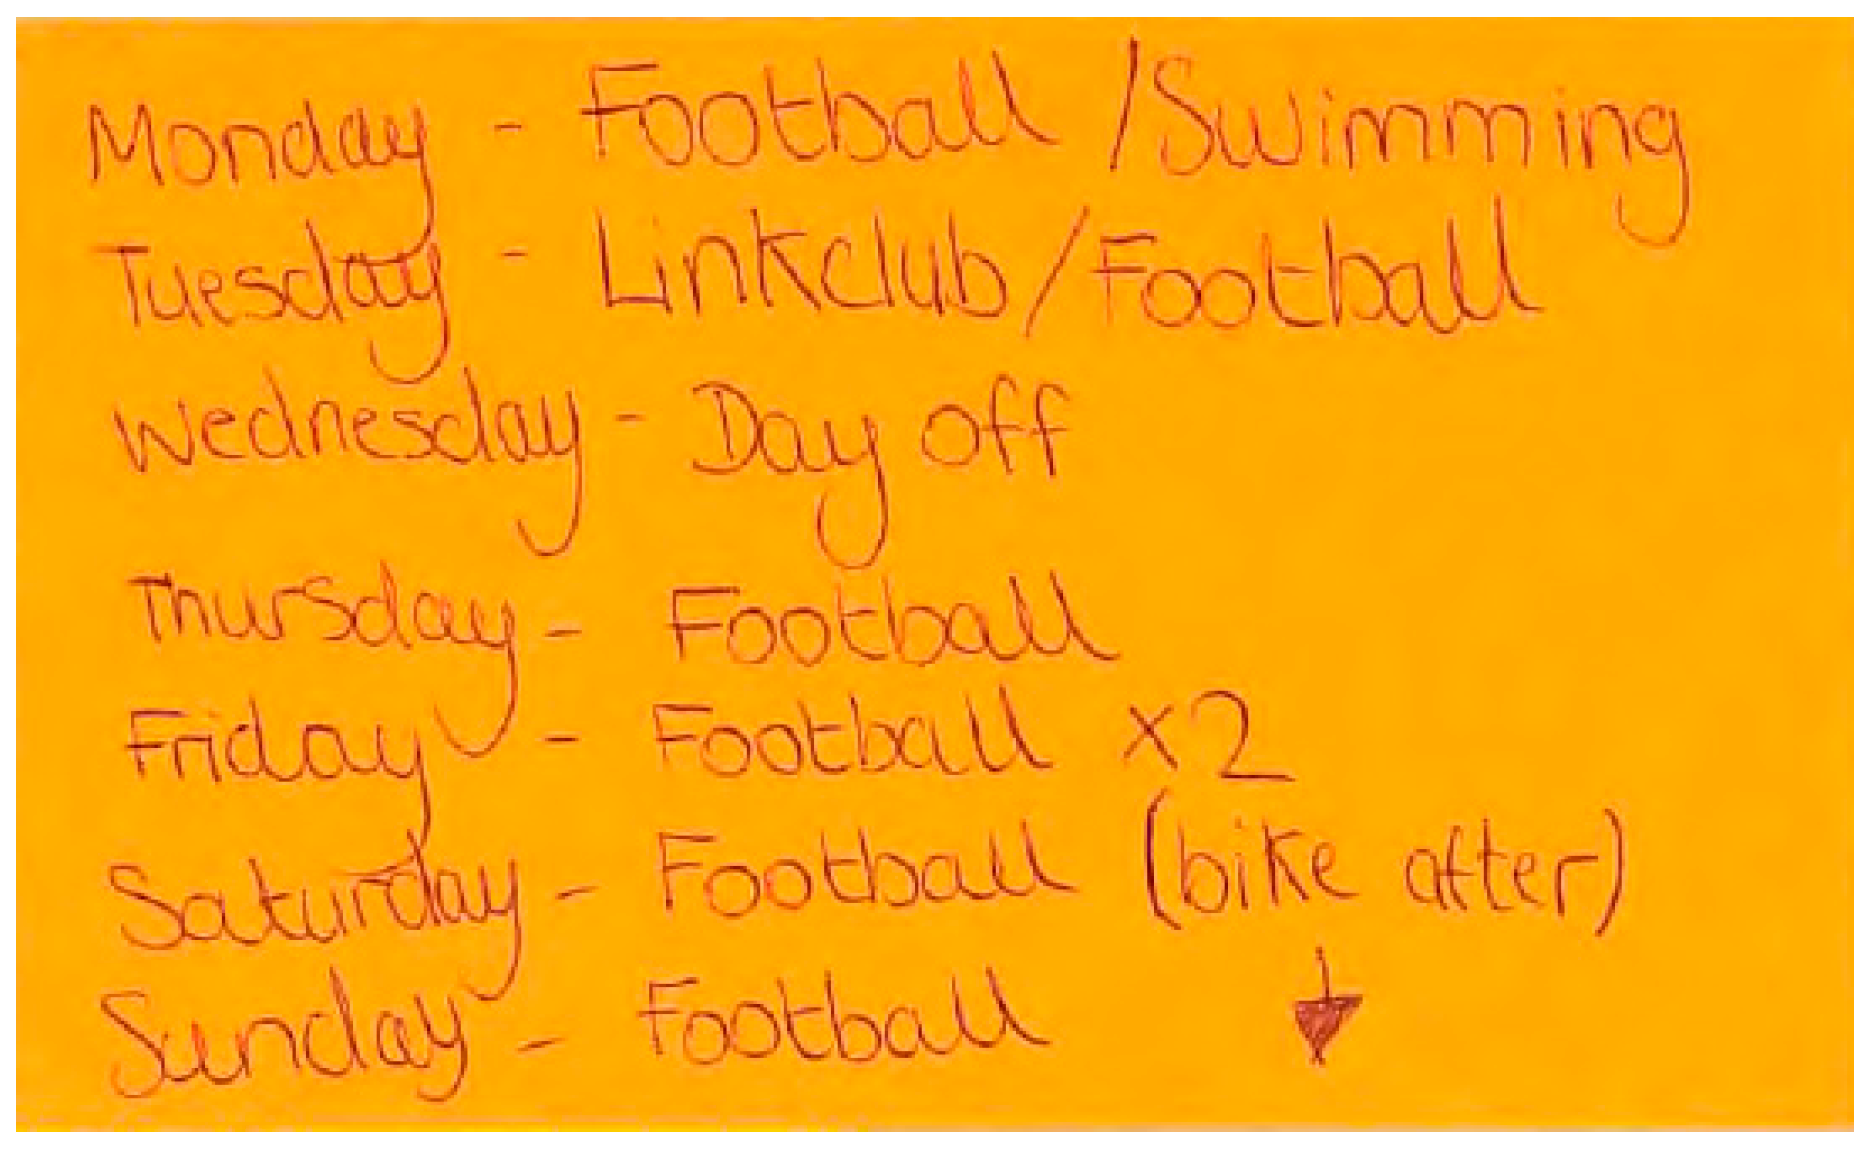 Monday - Football / Swimming
Tuesday - Linkclub / Football
Wednesday - Day off
Thursday - Football
Friday - Football x2
Saturday - Football (bike after)
Sunday - Football ↓